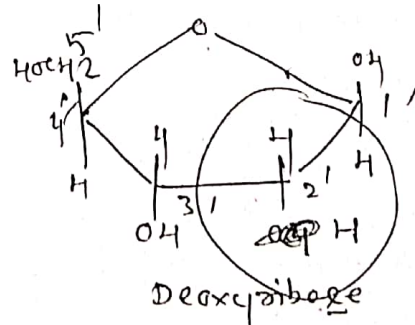 5'
O
HOCH2
OH
4'
1'
H
H
H
H
3'
2'
OH
H
Deoxyribose